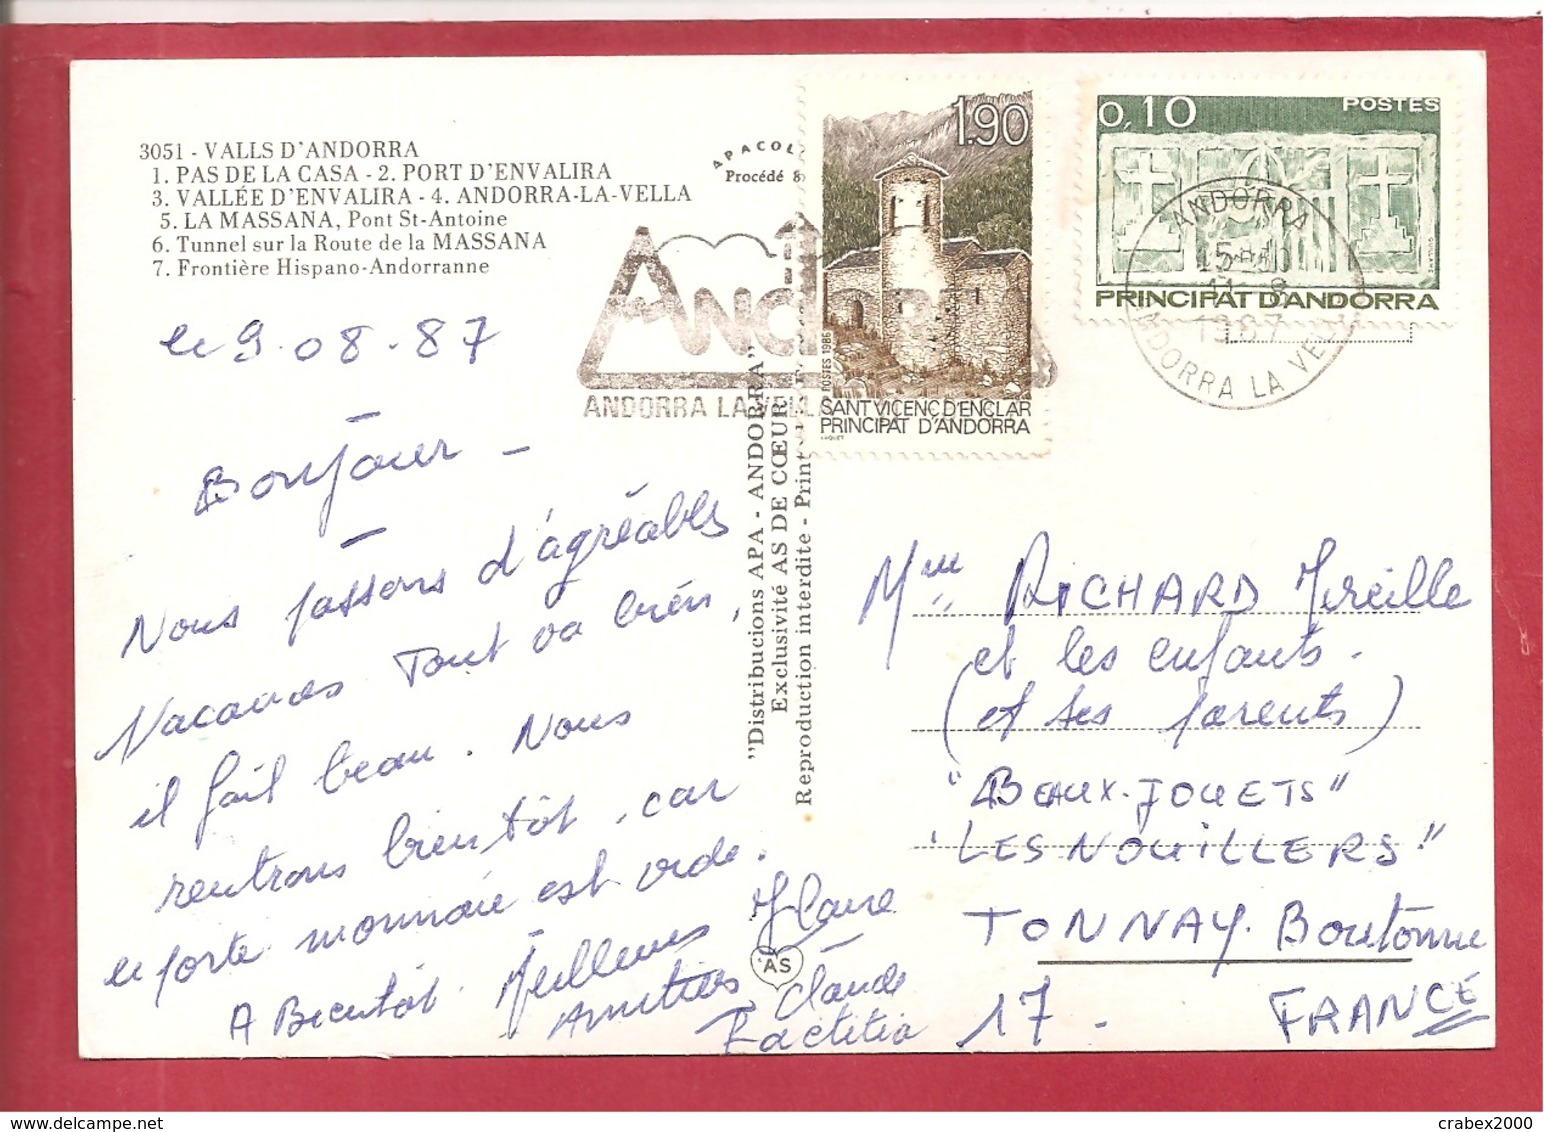 3051 - VALLS D'ANDORRA
1. PAS DE LA CASA - 2. PORT D'ENVALIRA
3. VALLÉE D'ENVALIRA - 4. ANDORRA-LA-VELLA
5. LA MASSANA, Pont St-Antoine
6. Tunnel sur la Route de la MASSANA
7. Frontière Hispano-Andorranne
APACOL
Procédé 8
1.90
POSTES 1986
SANT VICENÇ D'ENCLAR
PRINCIPAT D'ANDORRA
0,10 POSTES
PRINCIPAT D'ANDORRA
ANDORRA
15
11 - 8
1987
ANDORRA LA VELLA
ANDORRA LA VELLA
le 9.08.87
Bonjour -
Nous passons d'agréables
Vacances Tout va bien,
il fait beau. Nous
rentrons bientôt, car
le porte monnaie est vide.
A Bientôt. Meilleures
Amitiés
Claude
Laetitia
"Distribucions APA - ANDORRA"
Exclusivité AS DE CŒUR
Reproduction interdite - Print
AS
Mme RICHARD Mireille
et les enfants.
(et ses parents)
"BEAUX-JOUETS"
"LES NOUILLERS"
TONNAY-Boutonne
17.
FRANCE
crabex2000